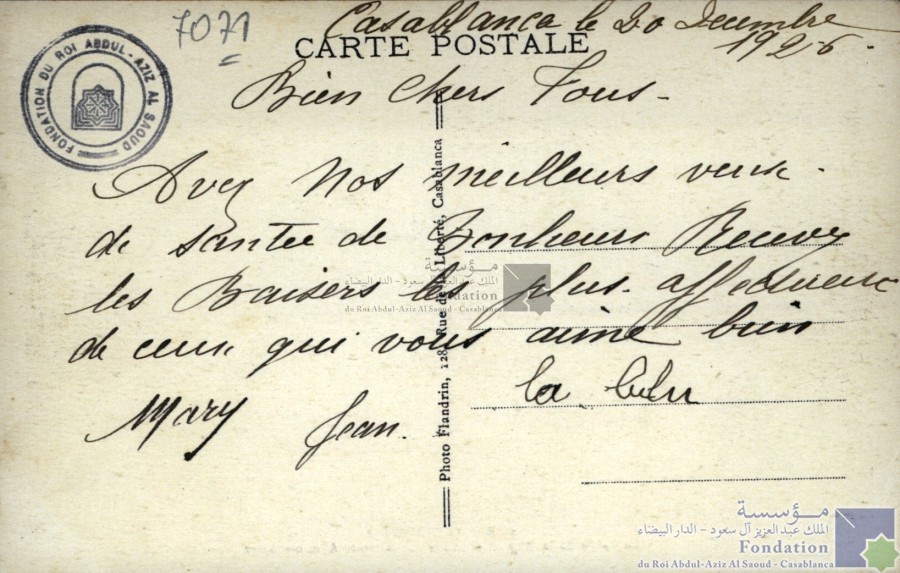 7071
Casablanca le 20 Decembre
1926.
CARTE POSTALE
FONDATION DU ROI ABDUL-AZIZ AL SAOUD
Bien Chers Tous-
Avez Nos meilleurs veux.
de santée de Bonheurs Recevez
les Baisers les plus affectueux
de ceux qui vous aime bien
la
Mary Jean.
Photo Flandrin, 128, Rue de la Liberté, Casablanca
مؤسسة
الملك عبد العزيز آل سعود - الدار البيضاء
Fondation
du Roi Abdul-Aziz Al Saoud - Casablanca
مؤسسة
الملك عبد العزيز آل سعود - الدار البيضاء
Fondation
du Roi Abdul-Aziz Al Saoud - Casablanca